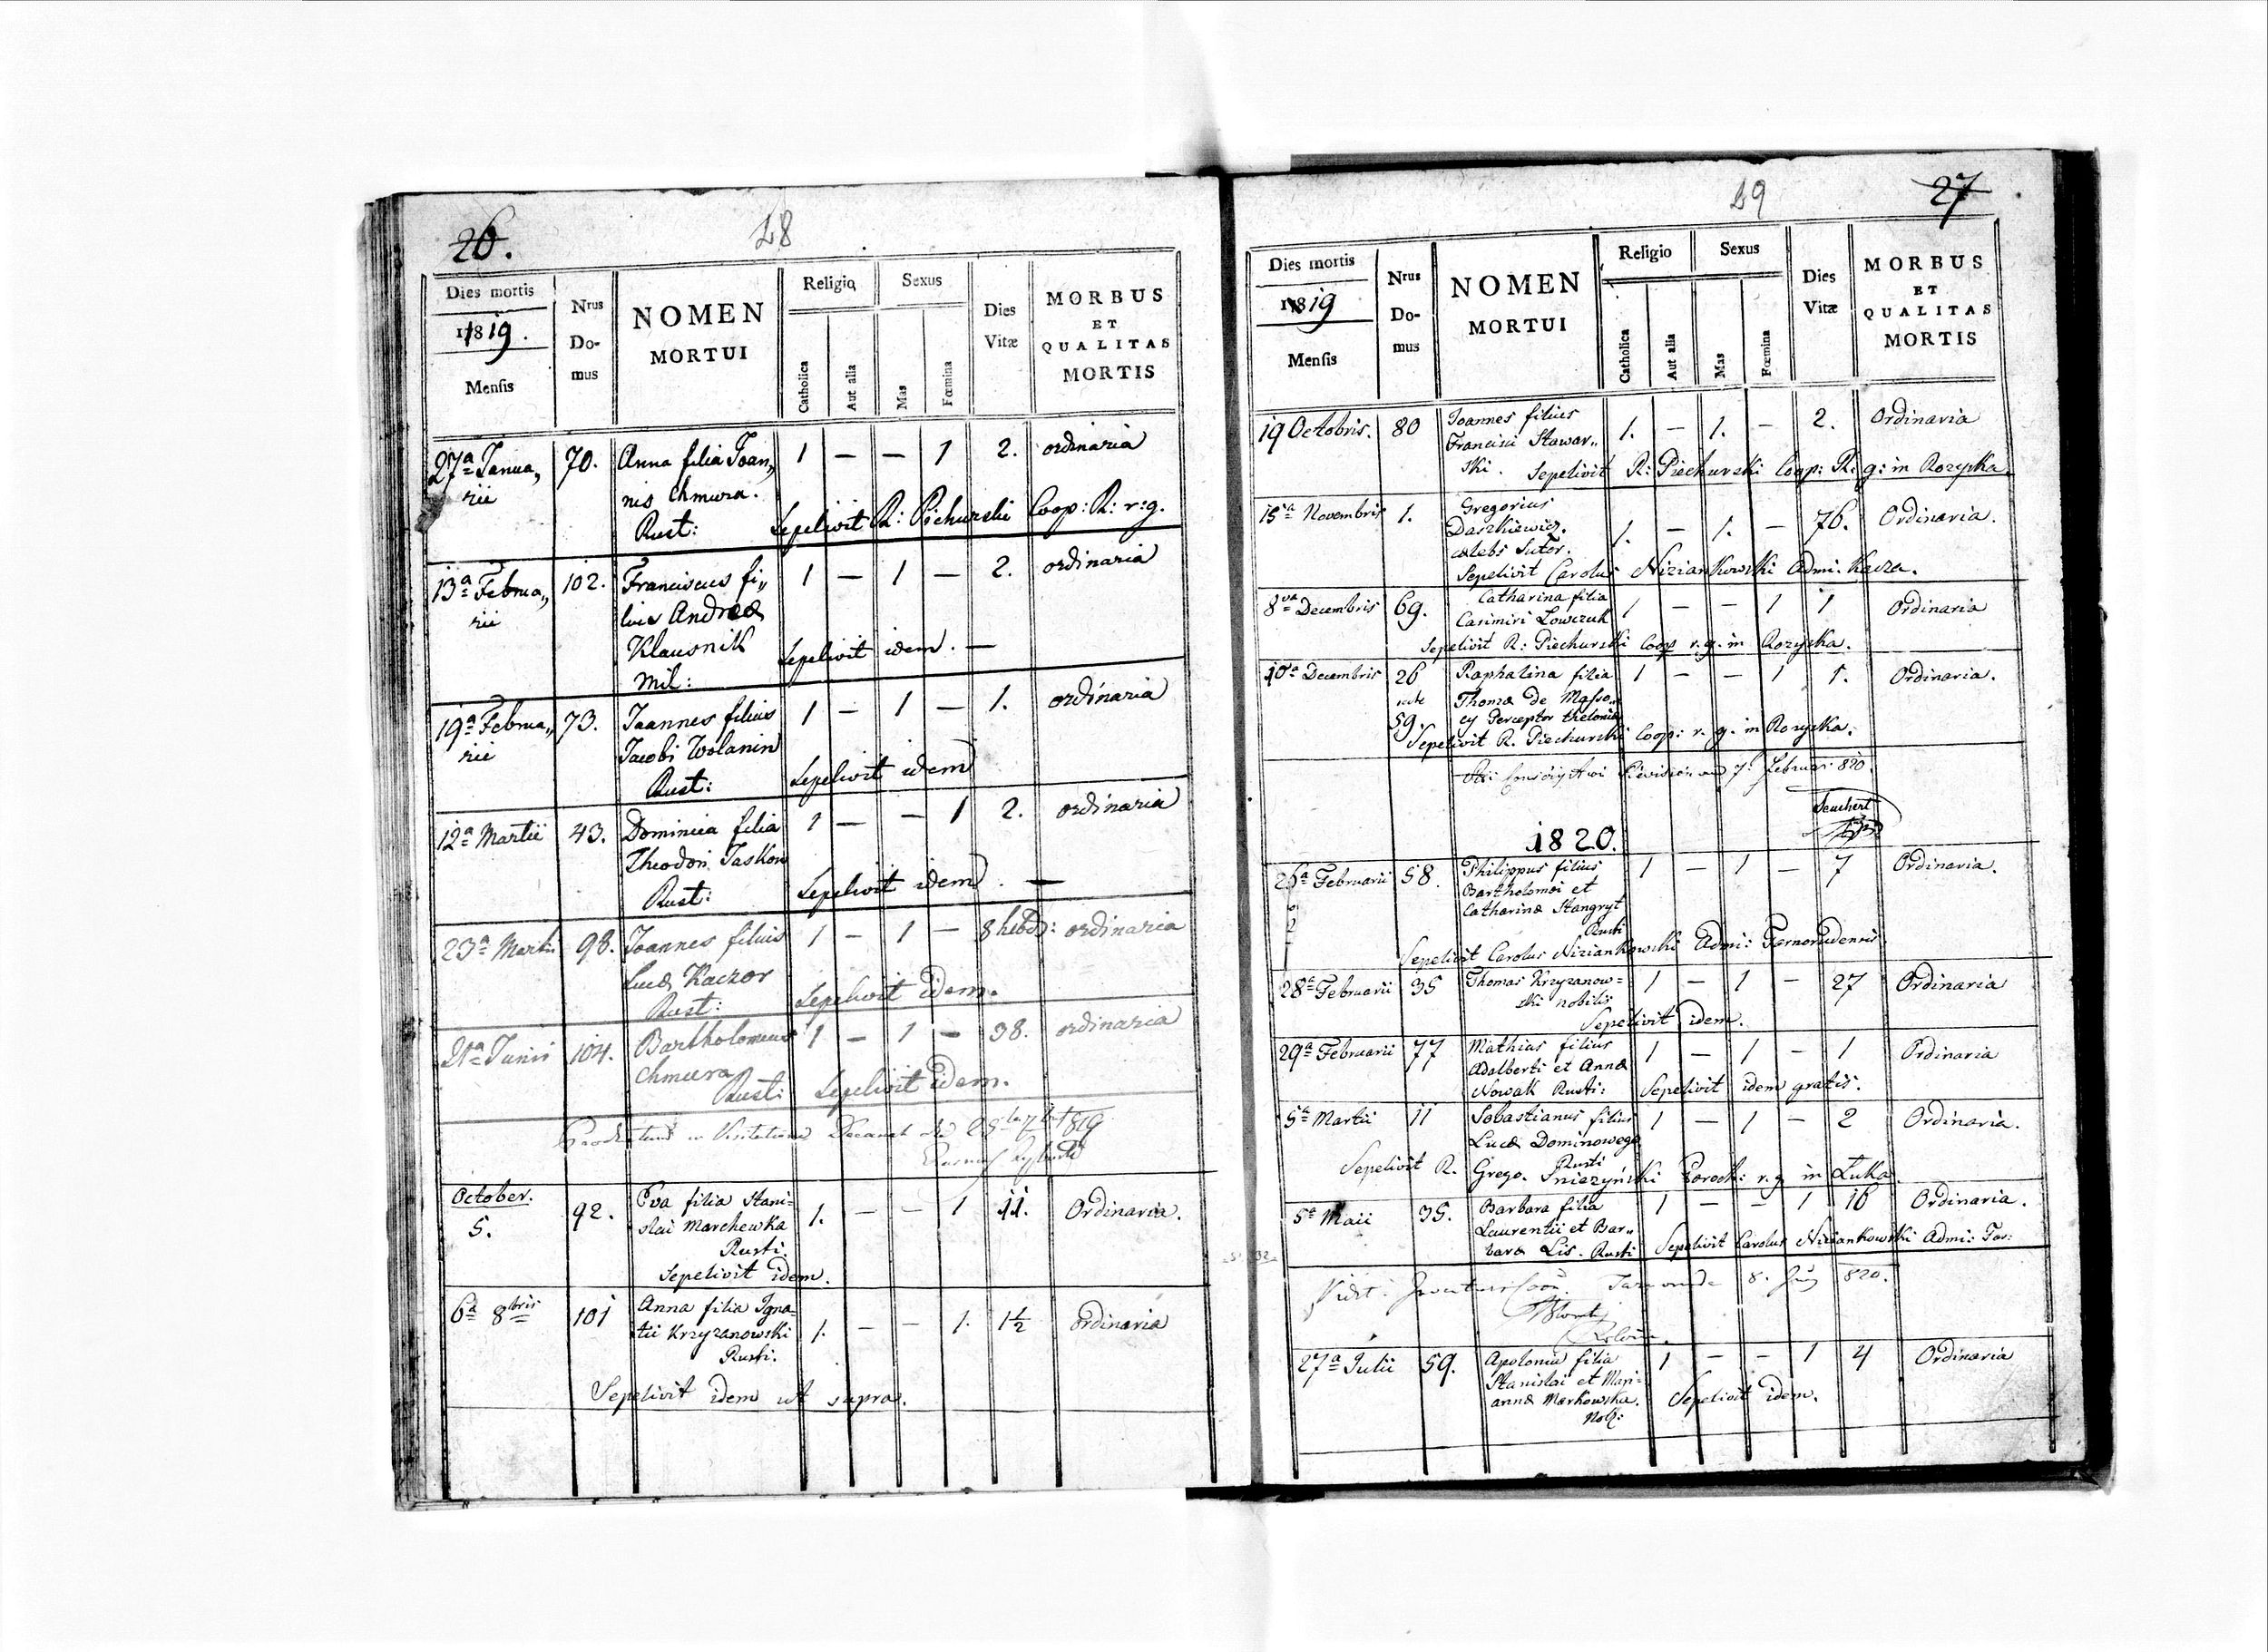 26.
28
Dies mortis
1819.
Mensis
Nrus
Do-
mus
NOMEN
MORTUI
Religio
Catholica
Aut alia
Sexus
Mas
Fœmina
Dies
Vitæ
MORBUS
ET
QUALITAS
MORTIS
27a Janua„ 70. Anna filia Joan„ 1 — — 1 2. ordinaria
rii nis Chmura.
Rust: Sepelivit R: Pichurski Coop: R: r: g.
13a Februa„ 102. Franciscus fi„ 1 — 1 — 2. ordinaria
rii lius Andreæ
Klausnik Sepelivit idem. —
Mil:
19a Februa„ 73. Joannes filius 1 — 1 — 1. ordinaria
rii Jacobi Wolanin
Rust: Sepelivit idem
12a Martii 43. Dominica filia 1 — — 1 2. ordinaria
Theodori Jaskon
Rust: Sepelivit idem. —
23a Martii 98. Joannes filius 1 — 1 — 8 hebd: ordinaria
Lucæ Kaczor
Rust: Sepelivit idem.
21a Junii 104. Bartholomeus 1 — 1 — 38. ordinaria
Chmura
Rust: Sepelivit idem.
1819
October. 92. Eva filia Stani- 1. — — 1 11. Ordinaria.
5. slai Marchewka
Rusti.
Sepelivit idem.
6a 8bris 101 Anna filia Igna- 1. — — 1. 1½ Ordinaria
tii Krzyzanowski
Rusti.
Sepelivit idem ut supra.
29
27
Dies mortis
1819
Mensis
Nrus
Do-
mus
NOMEN
MORTUI
Religio
Catholica
Aut alia
Sexus
Mas
Fœmina
Dies
Vitæ
MORBUS
ET
QUALITAS
MORTIS
19 Octobris. 80 Joannes filius 1. — 1. — 2. Ordinaria
Francisci Stawar„
ski. Sepelivit R: Piechurski Coop: R: g: in Rozycka.
15a Novembris 1. Gregorius
Daszkiewicz. 1. — 1. — 76. Ordinaria.
cælebs Sutor.
Sepelivit Carolus Niziankowski Admi. Kacza.
8va Decembris 69. Catharina filia 1 — — 1 1 Ordinaria
Casimiri Lowczuk
Sepelivit R: Piechurski Coop r. g. in Rozycka.
10a Decembris 26 Raphalina filia 1 — — 1 1. Ordinaria.
Thomæ de Masso„
59. cy Perceptor
Sepelivit R. Piechurski Coop: r. g. in Rozycka.
7. Februar 820.
1820.
26a Februarii 58. Philippus filius 1 — 1 — 7 Ordinaria.
Bartholomei et
Catharinæ Stangryt
Rusti
Sepelivit Carolus Niziankowski Admi: Tarnorudensis
28a Februarii 35 Thomas Krzyzanow= 1 — 1 — 27 Ordinaria
ski nobilis
Sepelivit idem.
29a Februarii 77 Mathias filius 1 — 1 — 1 Ordinaria
Adalberti et Annæ
Nowak Rusti: Sepelivit idem gratis.
5a Martii 11 Sebastianus filius 1 — 1 — 2 Ordinaria.
Lucæ Dominowego
Rusti
Sepelivit R. Grego. Sniezyński Paroch: r. g. in Łuka.
5a Maii 35. Barbara filia 1 — — 1 16 Ordinaria.
Laurentii et Bar„
baræ Lis. Rusti Sepelivit Carolus Niziankowski Admi: Tar:
8. 820.
27a Julii 59. Apolonia filia 1 — — 1 4 Ordinaria
Stanislai et Mari=
annæ Markowska. Sepelivit idem.